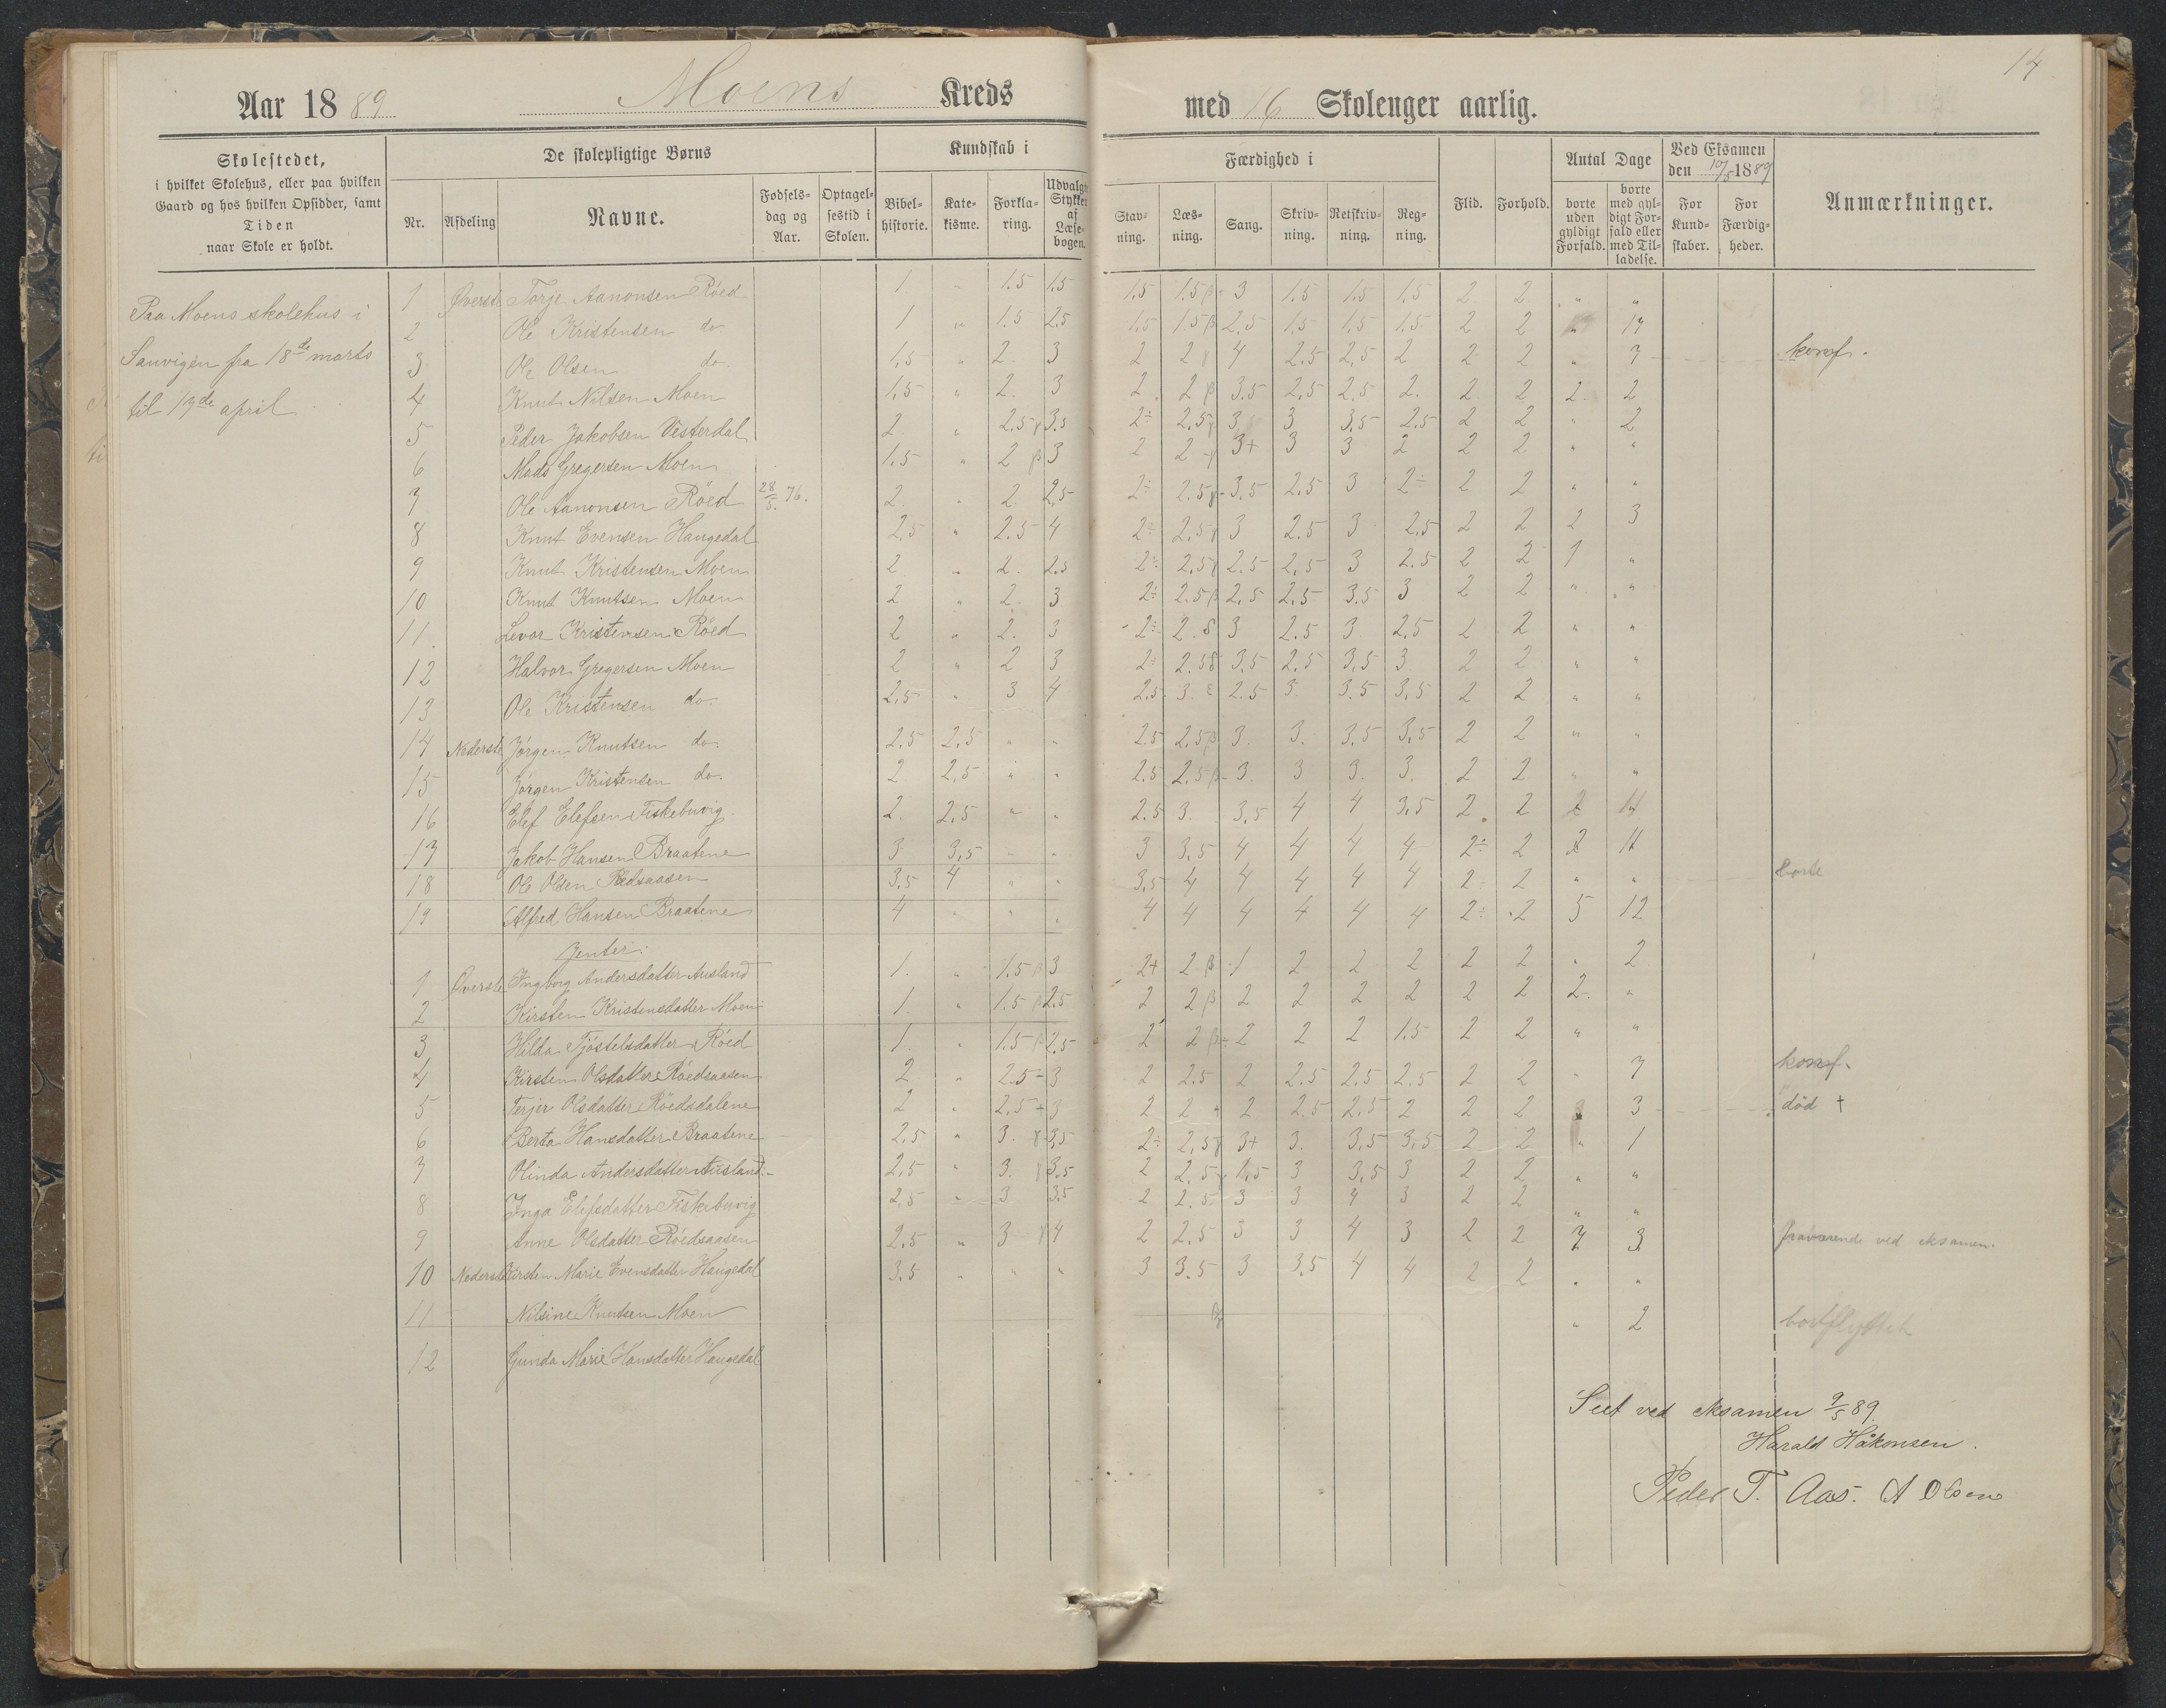 14
Aar 1889 Moens Kreds med 16 Skolenger aarlig.
Skolestedet, i hvilket Skolehus, eller paa hvilken Gaard og hos hvilken Opsidder, samt Tiden naar Skole er holdt.
De skolepligtige Børns
Nr. Afdeling Navne. Fødselsdag og Aar. Optagelsestid i Skolen.
Kundskab i
Bibelhistorie. Katekisme. Forklaring. Udvalgte Stykker af Læsebogen.
Færdighed i
Stavning. Læsning. Sang. Skrivning. Retskrivning. Regning.
Flid. Forhold.
Antal Dage
borte uden gyldigt Forfald. borte med gyldigt Forfald eller med Tilladelse.
Ved Eksamen den 10/5 1889
For Kundskaber. For Færdigheder.
Anmærkninger.
Paa Moens skolehus i
Sanvigen fra 18de marts
til 13de april
1 Øverste Torje Aanonsen Röed 1 " 1.5 1.5 1.5 1.5 β 3 1.5 1.5 1.5 2 2 " "
2 Ole Kristensen do. 1 " 1.5 2.5 1.5 1.5 β 2.5 1.5 1.5 1.5 2 2 " 17
3 Ole Olsen do. 1,5 " 2. 3 2 2 γ 4 2.5 2,5 2 2 2 " 7 konf.
4 Knut Nilsen Moen 1,5 " 2. 3 2 2 β 3.5 2,5 2.5 2. 2 2 2 2
5 Peder Jakobsen Vesterdal 2. " 2.5 γ 3.5 2÷ 2,5 γ 3 3 3,5 2.5 2 2 " 2
6 Mads Gregersen Moen 1.5 " 2 β 3 2 2 γ 3+ 3 3 2 2 2 " "
7 Ole Aanonsen Röed 28/5 76. 2. " 2. 2,5 2÷ 2.5 γ 3.5 2.5 3 2÷ 2 2 " "
8 Knut Evensen Haugedal 2,5 " 2.5 4 2÷ 2,5 γ 3 2.5 3 2,5 2 2 2 3
9 Knut Kristensen Moen 2 " 2. 2.5 2÷ 2,5 γ 2.5 2,5 3 2.5 2 2 1 "
10 Knut Knutsen Moen 2 " 2. 3 2÷ 2.5 β 2,5 2,5 3.5 3 2 2 " "
11. Levor Kristensen Röed 2 " 2. 3 2÷ 2. δ 3 2.5 3. 2,5 2 2 " "
12 Halvor Gregersen Moen 2 " 2 3 2÷ 2.5 δ 3.5 2.5 3,5 3. 2 2 " "
13 Ole Kristensen do. 2,5 " 3 4 2,5 3. ε 2.5 3. 3.5 3,5 2 2 " "
14 Nederste Jörgen Knutsen do. 2,5 2,5 " " 2.5 2,5 β 3. 3. 3,5 3,5 2 2 " "
15 Jörgen Kristensen do. 2 2,5 " " 2.5 2.5 β 3 3 3. 3. 2 2 " "
16 Elef Elefsen Fiskebuvig 2. 2,5 " " 2.5 3. 3,5 4 4 3,5 2 2 2 11
17 Jakob Hansen Braatene 3 3,5 " " 3 3,5 4 4 4 4 2÷ 2 2 11
18 Ole Olsen Rødsaasen 3,5 4 " " 3,5 4 4 4 4 4 2÷ 2 " " borte
19 Alfred Hansen Braatene 4 " " " 4 4 4 4 4 4 2÷ 2 5 12
Jenter:
1 Øverste Ingborg Andersdatter Ausland 1. " 1.5 β 3 2+ 2 β 1 2 2 2 2 2 " 2
2 Kirsten Kristensdatter Moen 1. " 1.5 β 2.5 2 2 β 2 2 2 2 2 2 2 "
3 Hilda Tjöstelsdatter Röed 1. " 1.5 β 2.5 2 2 β 2 2 2 1.5 2 2 " "
4 Kirsten Olsdatter Röedsaasen 2 " 2.5 3 2 2.5 2 2.5 2.5 2.5 2 2 " 7 konf.
5 Terjer Olsdatter Röedsdalene 2 " 2,5 + 3 2 2 + 2 2.5 2,5 2 2 2 " 3 död †
6 Berta Hansdatter Braatene 2,5 " 3. γ 3,5 2÷ 2,5 γ 3+ 3. 3,5 3,5 2 2 " 1
7 Olinda Andersdatter Ausland 2,5 " 3. γ 3,5 2 2.5 γ 1,5 3 3,5 3 2 2 " "
8 Inga Elefsdatter Fiskebuvig 2,5 " 3 3.5 2 2.5 3 3 4 3 2 2 " "
9 Anne Olsdatter Röedsaasen 2,5 " 3 γ 4 2 2.5 3 3 4 3 2 2 7 3 fraværende ved eksamen.
10 Nederste Kirsten Marie Evensdatter Haugedal 3.5 " " " 3 3.5 3 3.5 4 4 2 2 " "
11 Nilsine Knutsen Moen " 2 bortflyttet
12 Gunda Marie Hansdatter Haugedal
Seet ved eksamen 9/5 89.
Harald Håkonsen.
Peder T. Aas. A Olsen